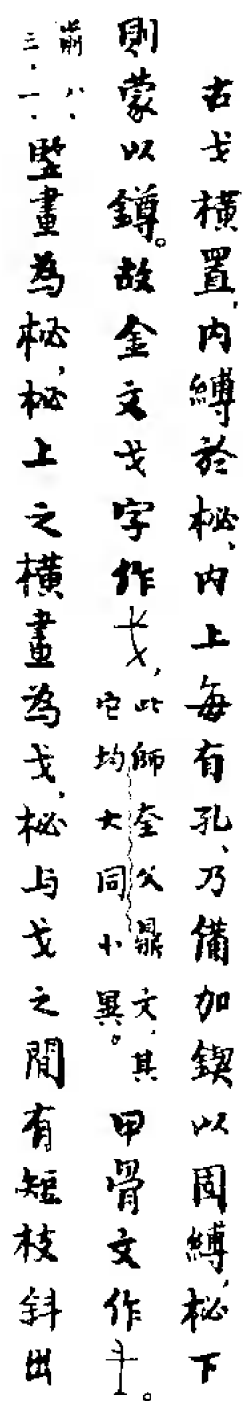 古戈橫置,内縛於柲,内上每有孔,乃備加鍥以固縛,柲下
則蒙以鐏。故金文戈字作,此師奎父鼎文,其它均大同小異。甲骨文作。
前八、三.一.豎畫為柲,柲上之橫畫為戈,柲与戈之間有短枝斜出